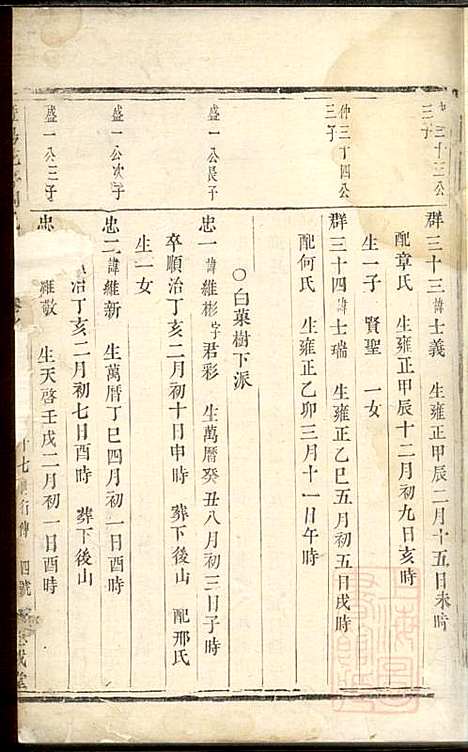 三十三公
三子
群三十三諱士義 生雍正甲辰二月十五日未時
配章氏 生雍正甲辰十二月初九日亥時
生一子 賢聖 一女
仲三十四公
三子
群三十四諱士瑞 生雍正乙巳五月初五日戌時
配何氏 生雍正乙卯三月十一日午時
○白菓樹下派
盛一公長子
忠一諱維彬字君彩 生萬曆癸丑八月初三日子時
卒順治丁亥二月初十日申時 葬下後山 配邢氏
生一女
盛一公次子
忠二諱維新 生萬曆丁巳四月初一日酉時
治丁亥二月初七日酉時 葬下後山
盛一公三子
忠 維敬 生天啓壬戌二月初一日酉時
十七 行傳 四號
堂